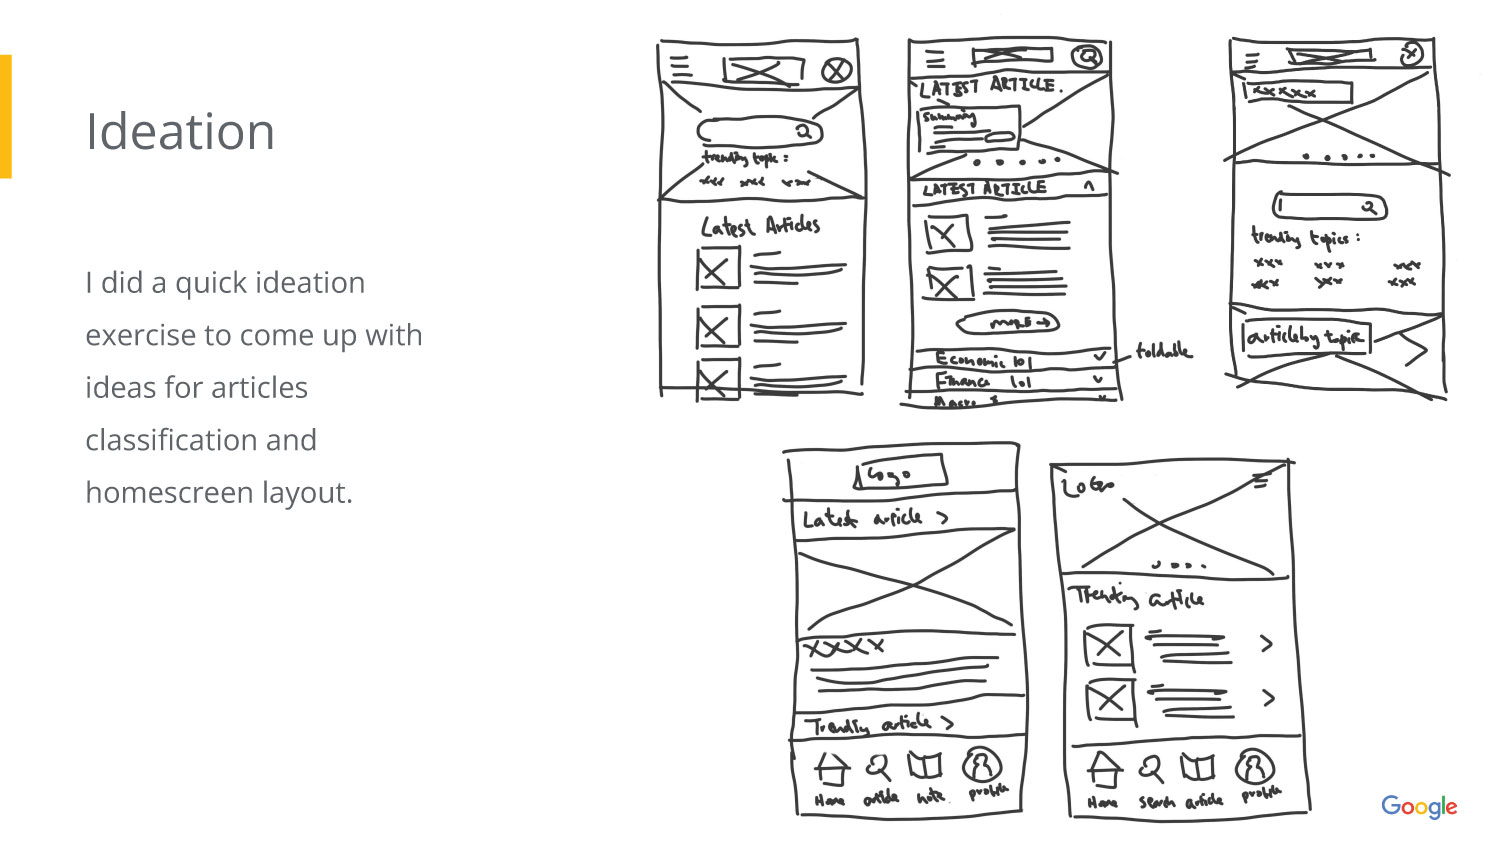 Ideation
I did a quick ideation
exercise to come up with
ideas for articles
classification and
homescreen layout.
trending topic :
xxx xxx xxx
Latest Articles
LATEST ARTICLE.
summary
LATEST ARTICLE
MORE →
Economic 101
Finance 101
foldable
xxxxx
trending topics :
xxx xxx xxx
xxx xxx xxx
article by topic
Logo
Latest article >
XXXX
Trending article >
Home article note profile
Logo
Trending article
Home search article profile
Google